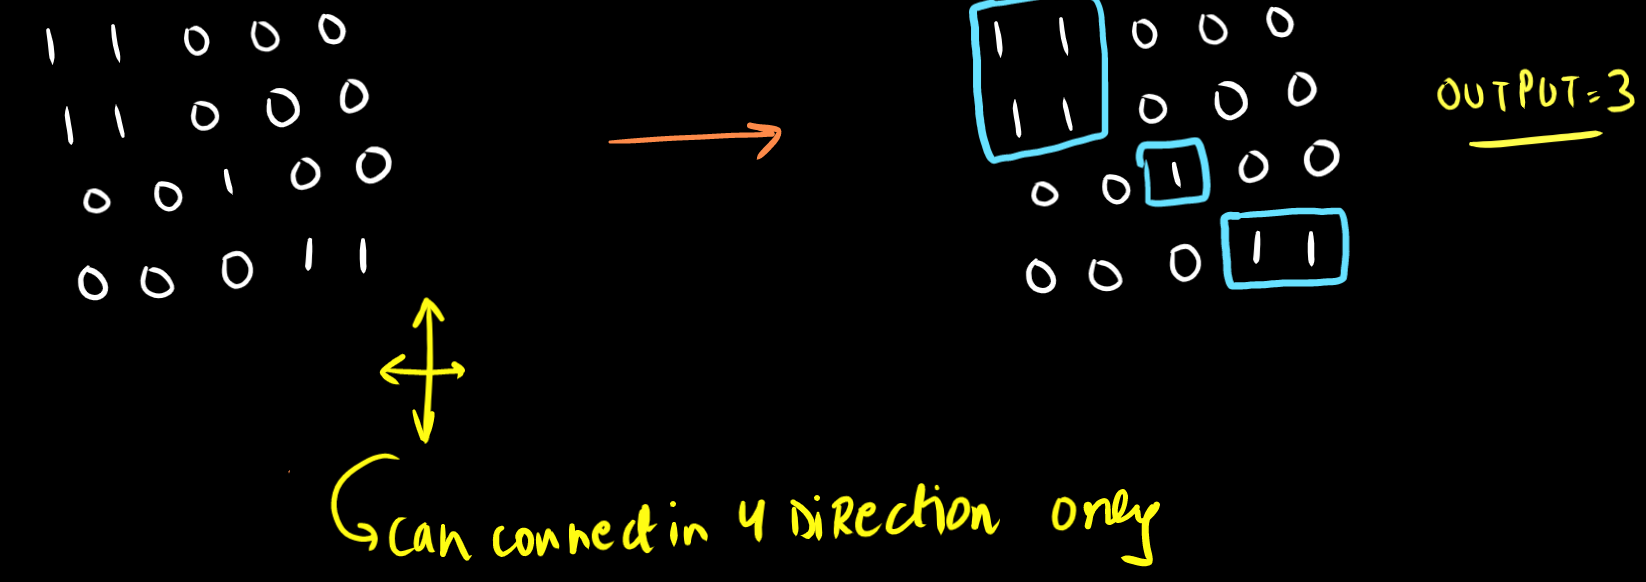 1 1 0 0 0
1 1 0 0 0
0 0 1 0 0
0 0 0 1 1
1 1 0 0 0
1 1 0 0 0
0 0 1 0 0
0 0 0 1 1
OUTPUT=3
can connect in 4 DiRection only